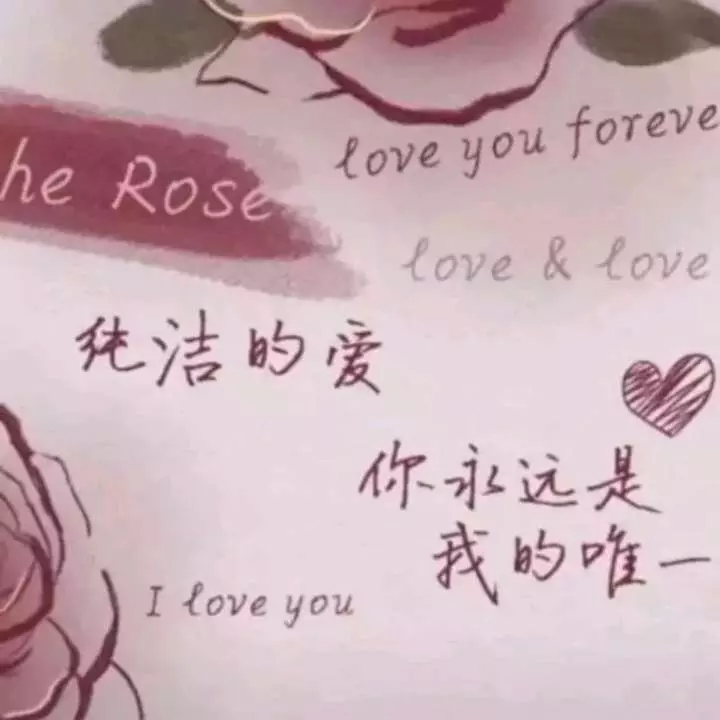 love you foreve
he Rose
love & love
纯洁的爱
你永远是
我的唯一
I love you